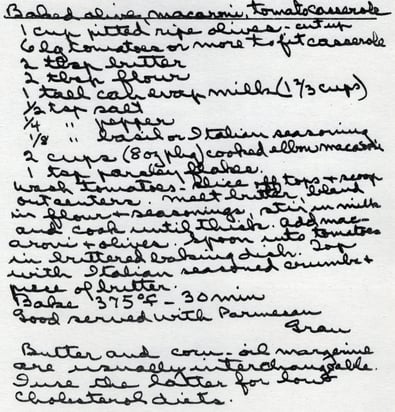 Baked olive, macaroni, tomato casserole
1 cup pitted ripe olives - cut up
6 lg tomatoes or more to fit casserole
2 tbsp butter
2 tbsp flour
1 tall can evap milk (1 2/3 cups)
1/2 tsp salt
1/4 " pepper
1/8 " basil or Italian seasoning
2 cups (8 oz pkg) cooked elbow macaroni
1 tsp parsley flakes
Wash tomatoes. Slice off tops + scoop
out centers. Melt butter, blend
in flour + seasonings, stir in milk
and cook until thick. Add mac-
aroni + olives. Spoon into tomatoes
in buttered baking dish. Top
with Italian seasoned crumbs +
piece of butter.
Bake 375°F - 30 min
Good served with Parmesan
Gran
Butter and corn-oil margerine
are usually interchangeable.
I use the latter for low
cholesterol diets.